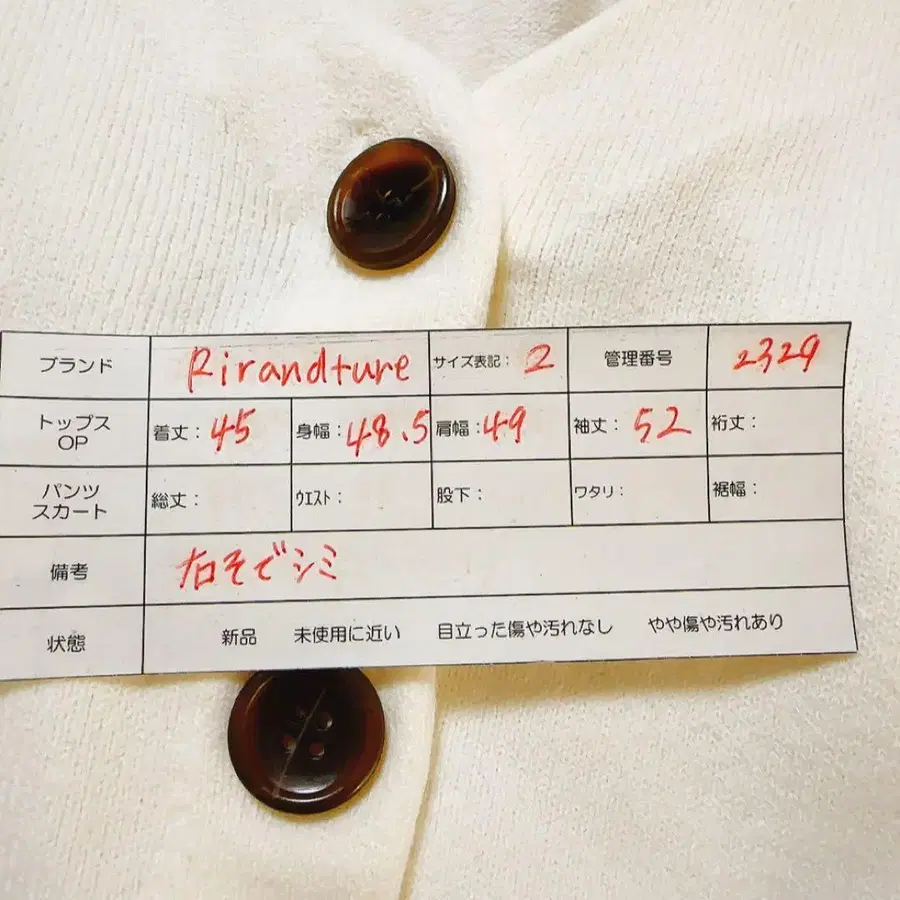 ブランド Rirandture サイズ表記： 2 管理番号 2329
トップス OP 着丈： 45 身幅： 48.5 肩幅： 49 袖丈： 52 裄丈：
パンツ スカート 総丈： ウエスト： 股下： ワタリ： 裾幅：
備考 右そでシミ
状態 新品 未使用に近い 目立った傷や汚れなし やや傷や汚れあり